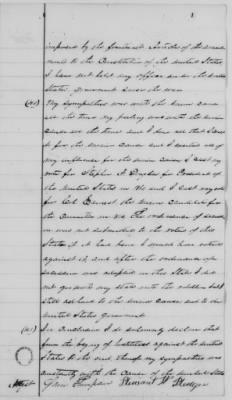 imposed by the fourteenth Article of the amend
ment to the Constitution of the United States
I have not held any office under the United
States government since the war
My sympathies were with the Union cause
all the time my feeling was with the Union
cause all the time and I done all that I could
do for the Union cause and I exerted all of
my influence for the Union cause I cast my
vote for Stephen A Douglas for President of
the United States in 1860 and I cast my vote
for Col the Union Candidate for
the Convention in The ordinance of secession
was not submitted to the voters of this
State if it had been I would have voted
against it, and after the ordinance of
secession was adopted in this State I did
not go with my state into the rebellion but
still adhered to the Union cause and to the
United States Government
In conclusion I do solemnly declare that
from the beginning of hostilities against the United
States to the end thereof my sympathies were
constantly with the cause of the United States
Attest Thompson